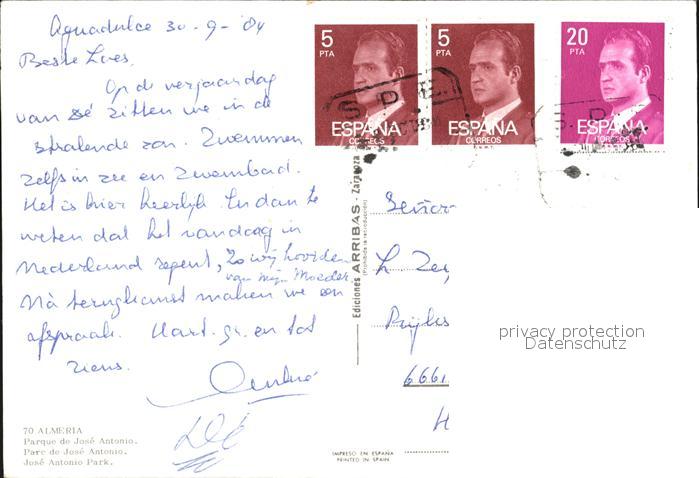 Aguadulce 30-9-84
Beste Lies.
Op de verjaardag
van Dé zitten we in de
stralende zon. Zwemmen
zelfs in zee en zwembad.
Het is hier heerlijk. En dan te
weten dat het vandaag in
Nederland regent, zo wij hoorden
van mijn Moeder.
Nà terugkomst maken we een
afspraak. Hart. gr. en tot
ziens.
70 ALMERIA
Parque de José Antonio.
Parc de José Antonio.
José Antonio Park.
Ediciones ARRIBAS - Zaragoza
(Prohibida la reproducción)
IMPRESO EN ESPAÑA
PRINTED IN SPAIN
5
PTA
ESPAÑA
CORREOS
5
PTA
ESPAÑA
CORREOS
20
PTA
ESPAÑA
CORREOS
S.P.E.
Señor
6661
privacy protection
Datenschutz